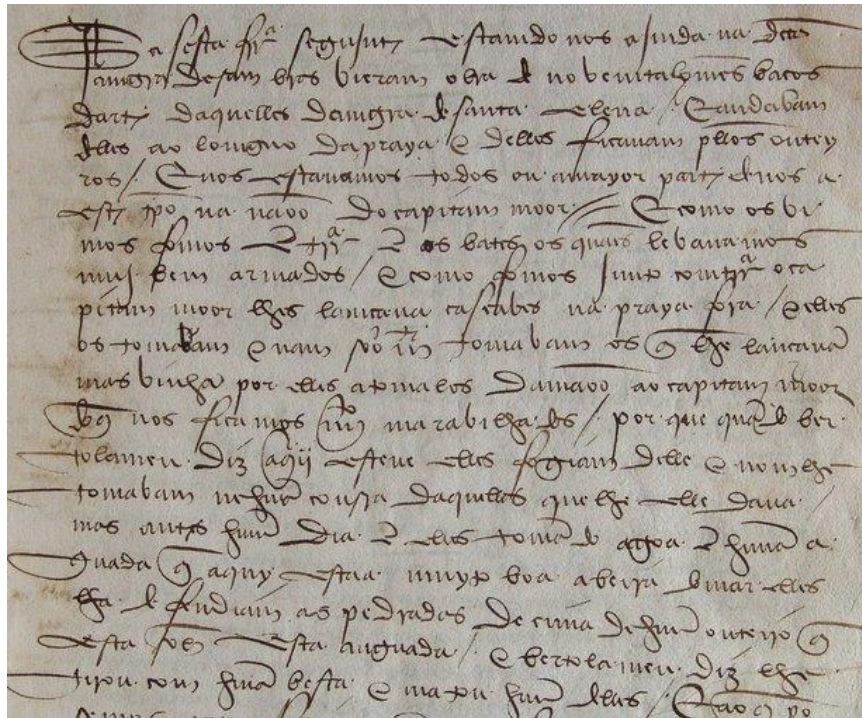 A sesta frª segujnte estamdo nos ajnda na dcta
amgra de sam bras vieram obra de noventa homẽes baços
darte daquelles damgra de santa elena / E andabam
delles ao longuo da praya e delles ficavam pllos outey
ros / E nos estavamos todos ou a mayor parte de nos a
este tpõ na naoo do capitam moor // E como os vi
mos fomos ẽ trrª ẽ os batẽs os quaẽs levavamos
muj bem armados / e como fomos Junto com trrª o ca
pitam moor lhes lamcava cascabes na praya fora / e elles
os tomabam e nam soo tomabam os q̃ lhe lancavã
mas vinhã por elles a tomalos da maoo ao capitam moor
do q̃ nos ficamos marabilhados / por que quãdo ber
tolameu diz aqui esteve elles fogiam delle e nom lhe
tomabam nehũa cousa daquellas que lhe elle dava
mas antes huũ dia ẽ elles tomãdo agoa ẽ huũa a
guada q̃ aquy estaa muyto boa a beira do mar elles
lha defendiam as pedradas de cima de huũ outeiro q̃
esta sobre esta auguada / E bertolameu diz lhe
tirou com huũa besta e matou huũ delles /